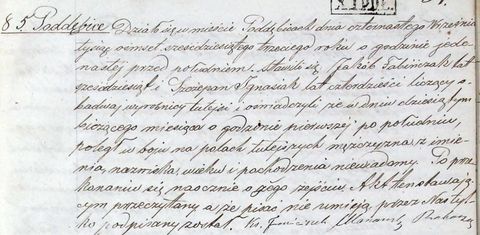 85. Poddębice Działo się w mieście Poddębicach dnia czternastego Września
tysiąc ośmset sześćdziesiątego trzeciego roku o godzinie jede-
nastej przed południem. Stawili się Jakób Tabińczak lat
sześćdziesiąt i Szczepan Ignasiak lat czterdzieści liczący o-
badwaj wyrobnicy tutejsi i oświadczyli że w dniu dziesiątym
bieżącego miesiąca o godzinie pierwszej po południu,
poległ w boju na polach tutejszych mężczyzna z imie-
nia, nazwiska, wieku i pochodzenia niewiadomy. Po prze-
konaniu się naocznie o jego zejściu, Akt ten stawają-
cym przeczytany a że pisać nie umieją przez Nas tyl-
ko podpisany został. Ks.